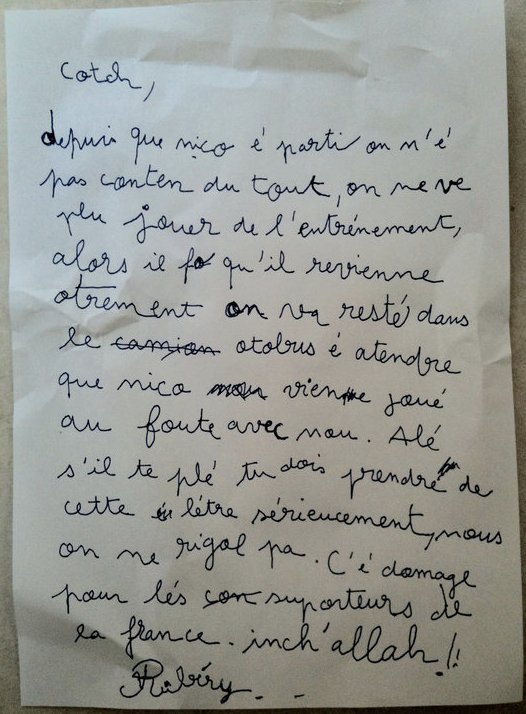 Cotch,
depuis que nico é parti on n'é
pas conten du tout, on ne ve
plu jouer de l'entrénement,
alors il fo qu'il revienne
otrement on va resté dans
le camion otobus é atendre
que nico vienne joué
au foute avec nou. Alé
s'il te plé tu dois prendre de
cette létre sérieucement, nous
on ne rigol pa. C'é damage
pour lés con suporteurs de
la france. inch'allah!!
Ribéry